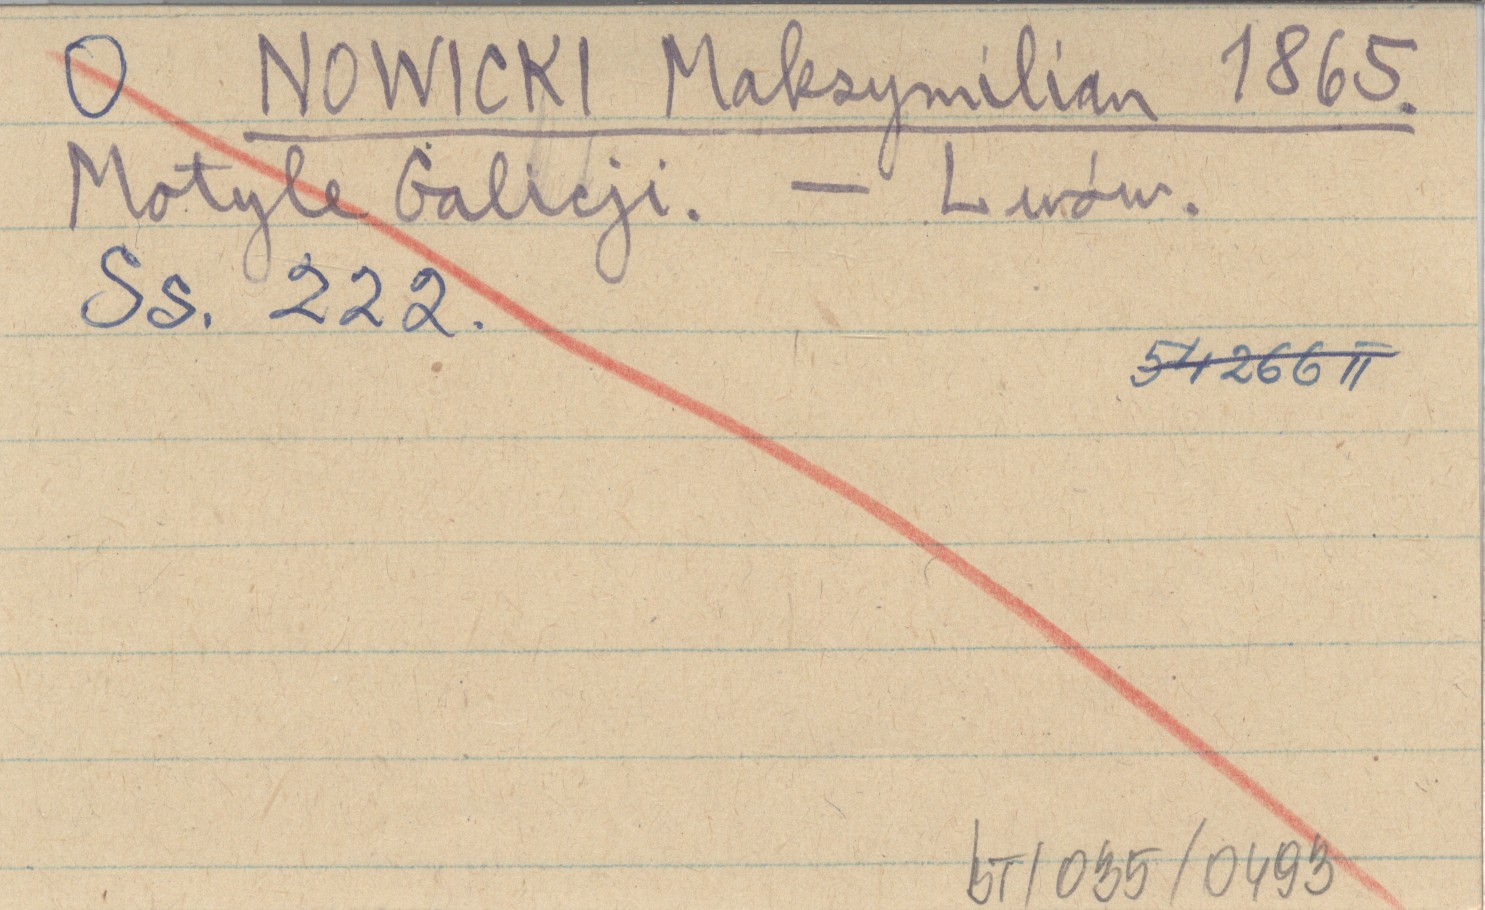 O NOWICKI Maksymilian 1865.
Motyle Galicji. — Lwów.
Ss. 222.
54266 II
bT/035/0493